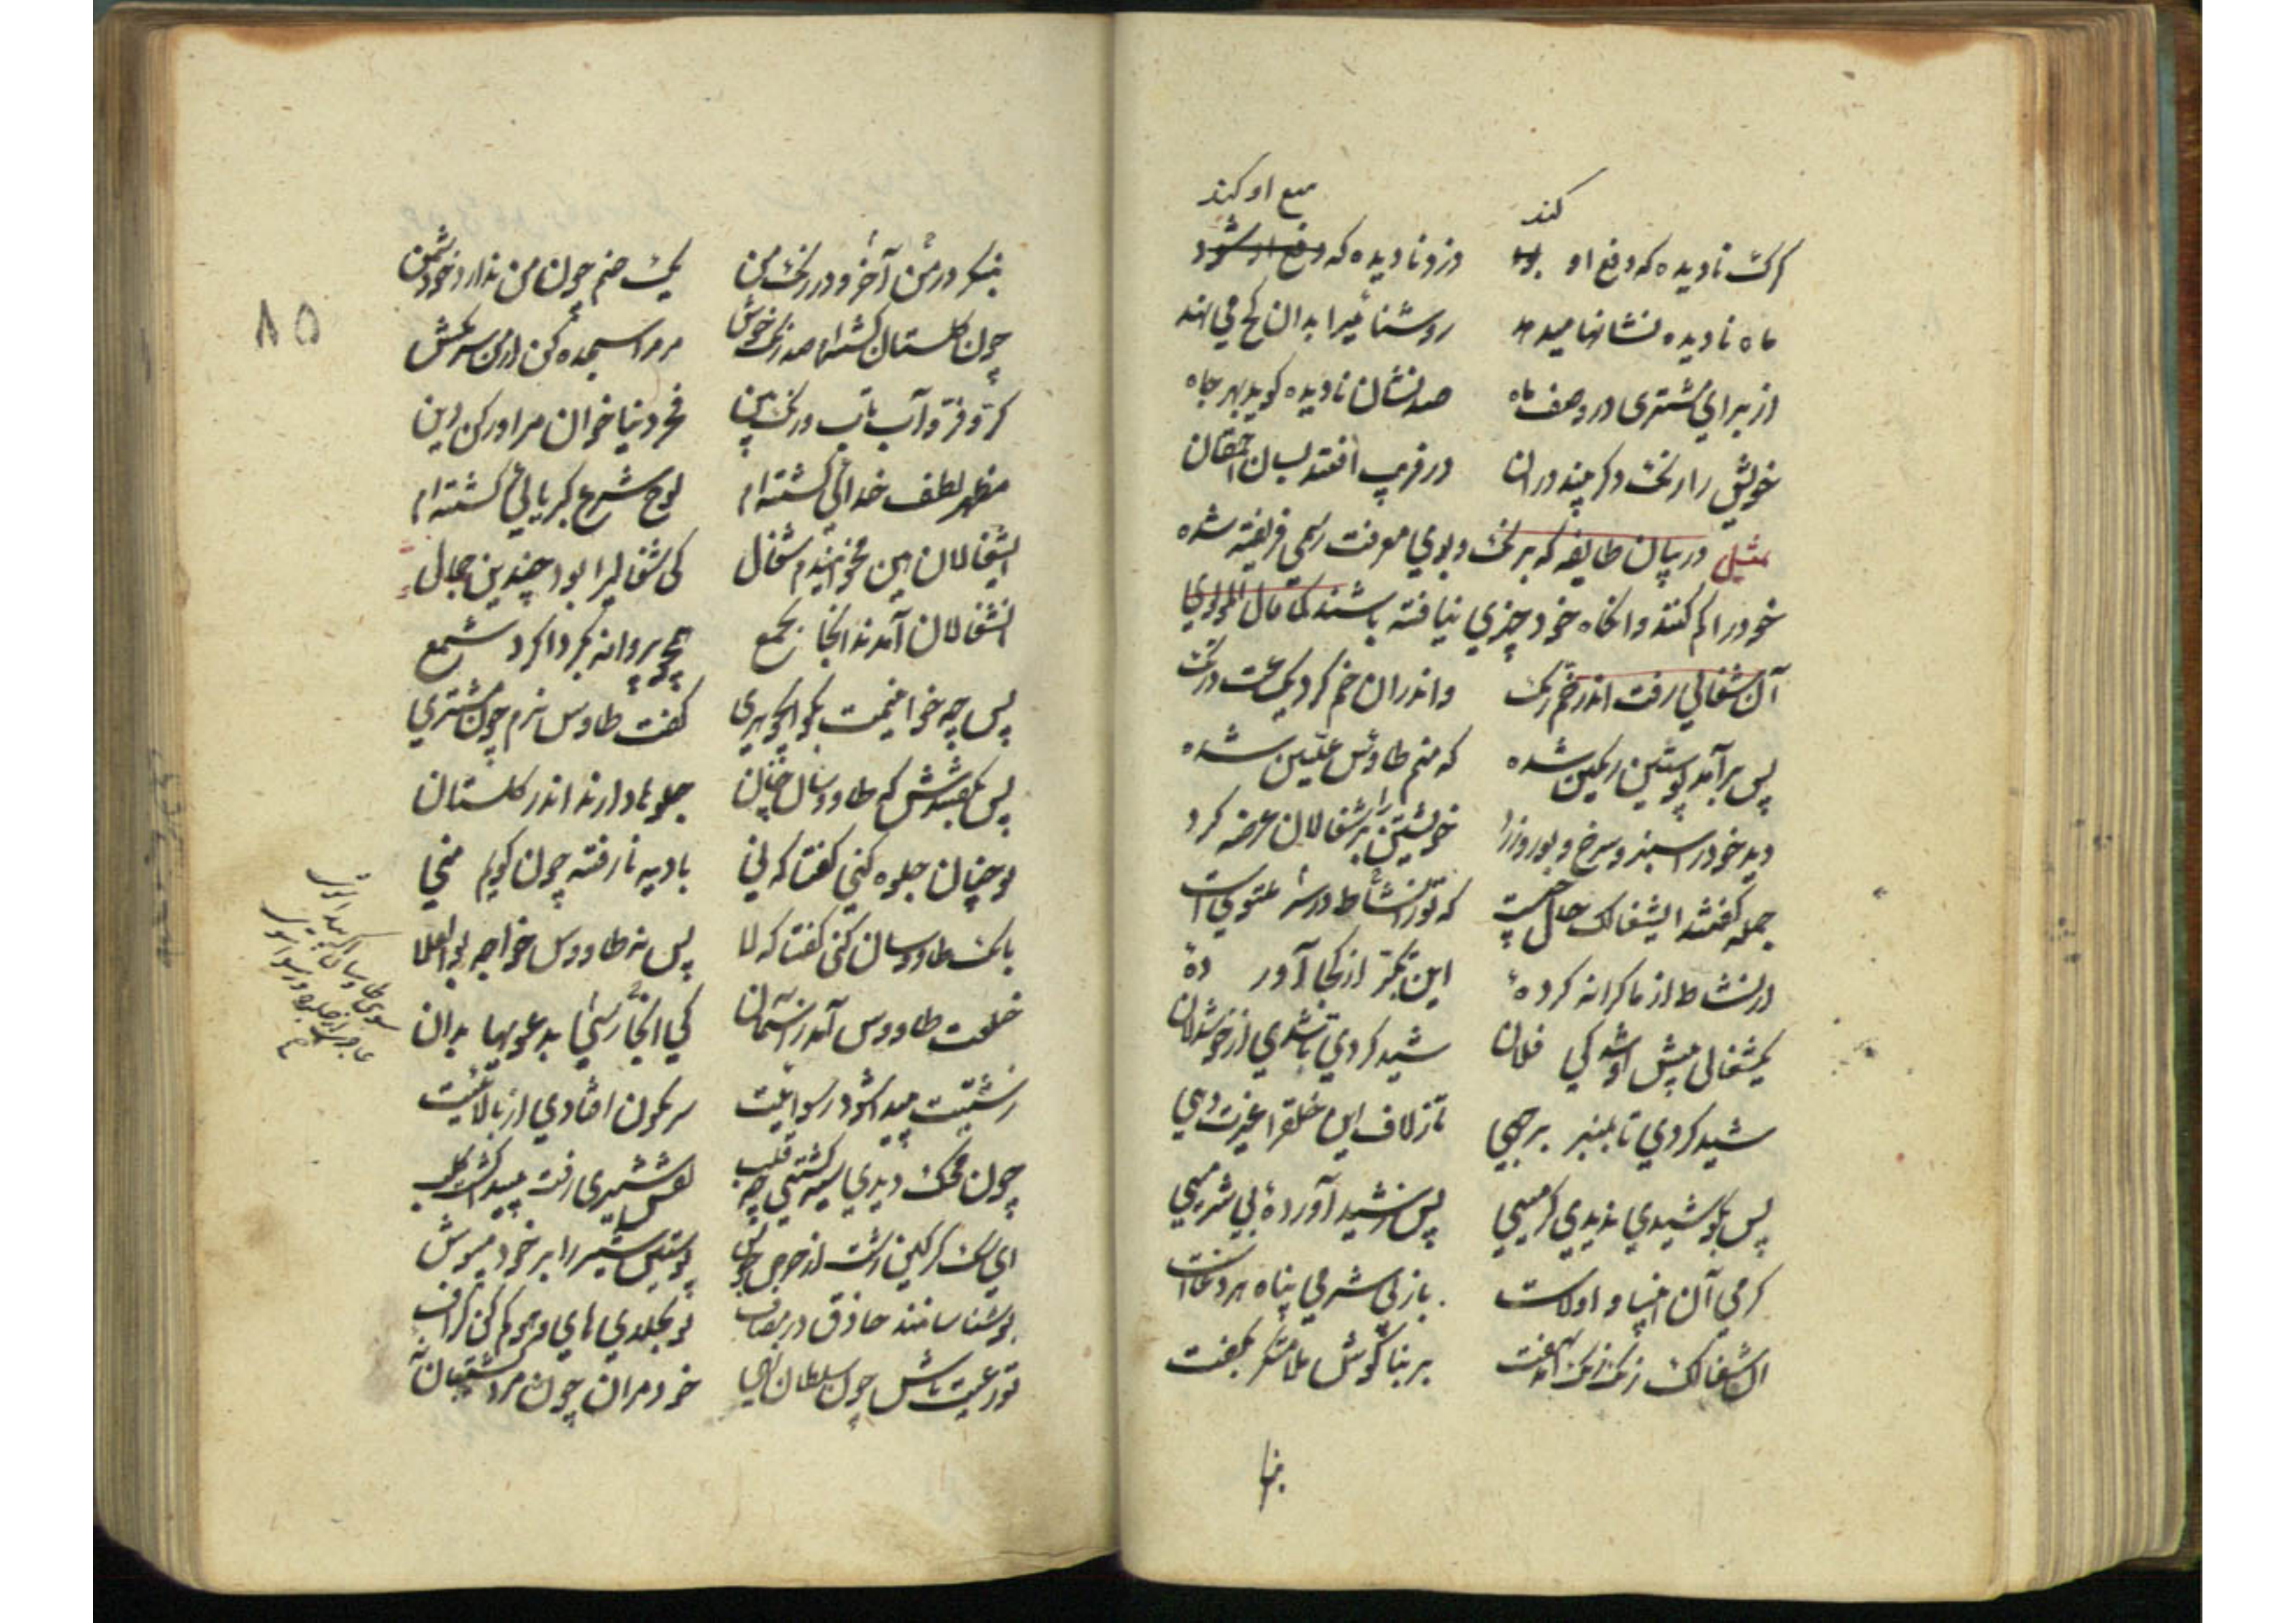 کند
منع او کند
کرک نادیده که دفع او بود
دزد نادیده که دفع او شود
ماه نادیده نشانها میدهد
روشنائیرا بدان کج می نهد
از برای مشتری در وصف ماه
صد نشان نادیده کوید بهر جاه
خویش را رنک دکر بیند در ان
در فریب افتد بسان احمقان
تمثیل در بیان طایفه که برنک و بوی معرفت رسمی فریفته شده
خود را کم کنند و انکاه خود چیزی نیافته باشند کما قال المولوی
آن شغالی رفت اندر خم رنک
و اندران خم کرد یکساعت درنک
پس برآمد پوستین رنکین شده
که منم طاوس علیین شده
دید خود را سبز و سرخ و بور و زرد
خویشتن را بر شغالان عرضه کرد
جمله کفتند ایشغالک حال چیست
که ترا نشاط در سر ملتویست
از نشاط از ما کرانه کردهٔ
این تکبر از کجا آوردهٔ
یکشغالی پیش او شد کی فلان
شید کردی تا شوی از خوشدلان
شید کردی تا بمنبر برجهی
تا ز لاف این خلقرا غیرت دهی
پس بکوشیدی ندیدی کرمیی
پس ز شید آوردهٔ بی شرمیی
کرمی آن انبیا و اولیاست
باز بی شرمی پناه هر دغاست
ان شغالک رنک رنک آمد نهفت
بر بناکوش ملامتکر بکفت
بنکر
۸۵
بنکر در من آخر و در رنک من
یک صنم چون من ندارد خود شمن
چون کلستان کشته‌ام صد رنک خوش
مر مرا سجده کن از من سر مکش
کر و فر و آب تاب و رنک بین
فخر دنیا خوان مرا و رکن دین
مظهر لطف خدائی کشته ام
لوح شرح کبریائی کشته ام
ایشغالان هین مخوانیدم شغال
کی شغالیرا بود چندین جمال
انشغالان آمدند انجا بجمع
همچو پروانه بکردا کرد شمع
پس چه خوانیمت بکو ایجوهری
کفت طاوس نرم چون مشتری
پس بکفتندش که طاووسان جان
جلوها دارند اندر کلستان
تو چنان جلوه کنی کفتا که نی
بادیه نارفته چون کویم منی
بانک طاووسان کنی کفتا که لا
پس نه طاووس خواجه بوالعلا
خلعت طاووس آمد ز آسمان
کی انجا رسی بدعویها بدان
زشتیت پیدا شود رسواییت
سرنکون افتادی از بالاییت
چون محک دیدی سیه کشتی چو قلب
نقش شیری رفت پیدا کشت کلب
ای سک کرکین زشت از حرص و جوش
پوستین شیر را بر خود مپوش
خود مران چون مرد کشتیبان نهٔ